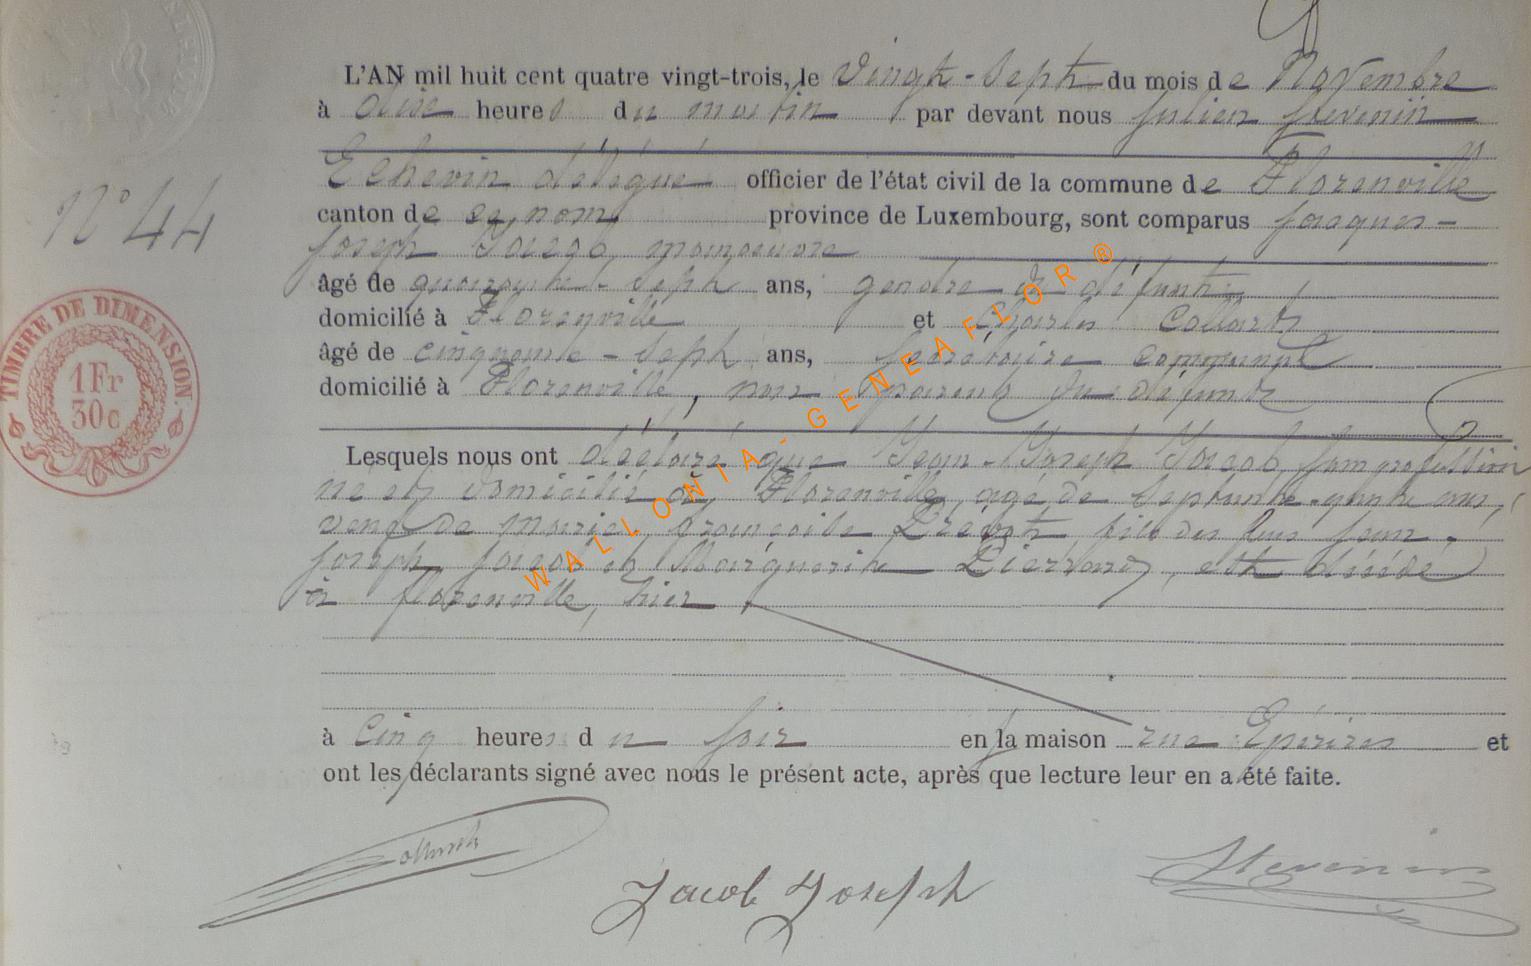 L'AN mil huit cent quatre vingt-trois, le Vingt-Sept du mois de Novembre
à dix heures du matin par devant nous Julien Stevenin
Echevin délégué officier de l'état civil de la commune de Florenville
N° 44
canton de ce nom province de Luxembourg, sont comparus Jacques-
Joseph Jacob, manoeuvre
âgé de quarante-Sept ans, gendre du défunt
domicilié à Florenville et Charles Collart
âgé de cinquante-Sept ans, Secrétaire communal
domicilié à Florenville, non parent du défunt
TIMBRE DE DIMENSION.
1Fr
30c
Lesquels nous ont déclaré que Jean-Joseph Jacob, sans profession
né et domicilié à Florenville, agé de Septante ans,
veuf de Marie Françoise fils des feus Jean-
Joseph Jacob et Marguerite Pierrard, est décédé
à Florenville, hier
à Cinq heures du Soir en la maison rue et
ont les déclarants signé avec nous le présent acte, après que lecture leur en a été faite.
Collart
Jacob Joseph
Stevenin
WALLONIA-GENEAFLOR®